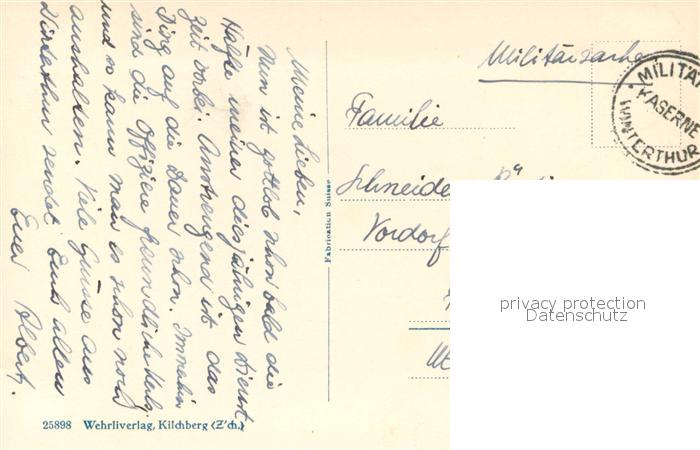 Meine Lieben,
Nun ist gottlob schon bald die
Hälfte meiner diesjährigen Dienst
Zeit vorbei. Anstrengend ist das
Ding auf die Dauer schon. Immerhin
sind die Offiziere freundliche Kerls
und so kann man es schon noch
aushalten. Viele Grüsse aus
Winterthur sendet Euch allen
Euer Albert.
25898 Wehrliverlag, Kilchberg (Z'ch.)
Fabrication Suisse
Militärsache
MILITÄ
KASERNE
WINTERTHUR
Familie
Schneider
Vordorf
privacy protection
Datenschutz